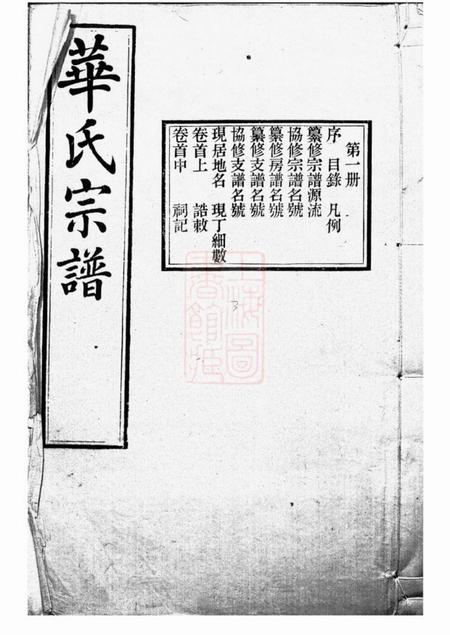 華氏宗譜
第一册
序 目錄 凡例
纂修宗譜源流
協修宗譜名號
纂修房譜名號
纂修支譜名號
協修支譜名號
現居地名 現丁細數
卷首上 誥敕
卷首中 祠記
上海圖書館藏